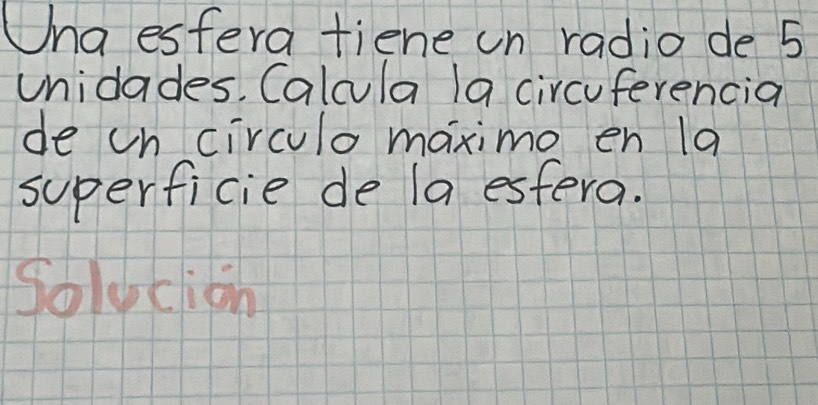 Una esfera tiene un radio de 5
unidades. Calcula la circuferencia
de un círculo máximo en la
superficie de la esfera.
Solución